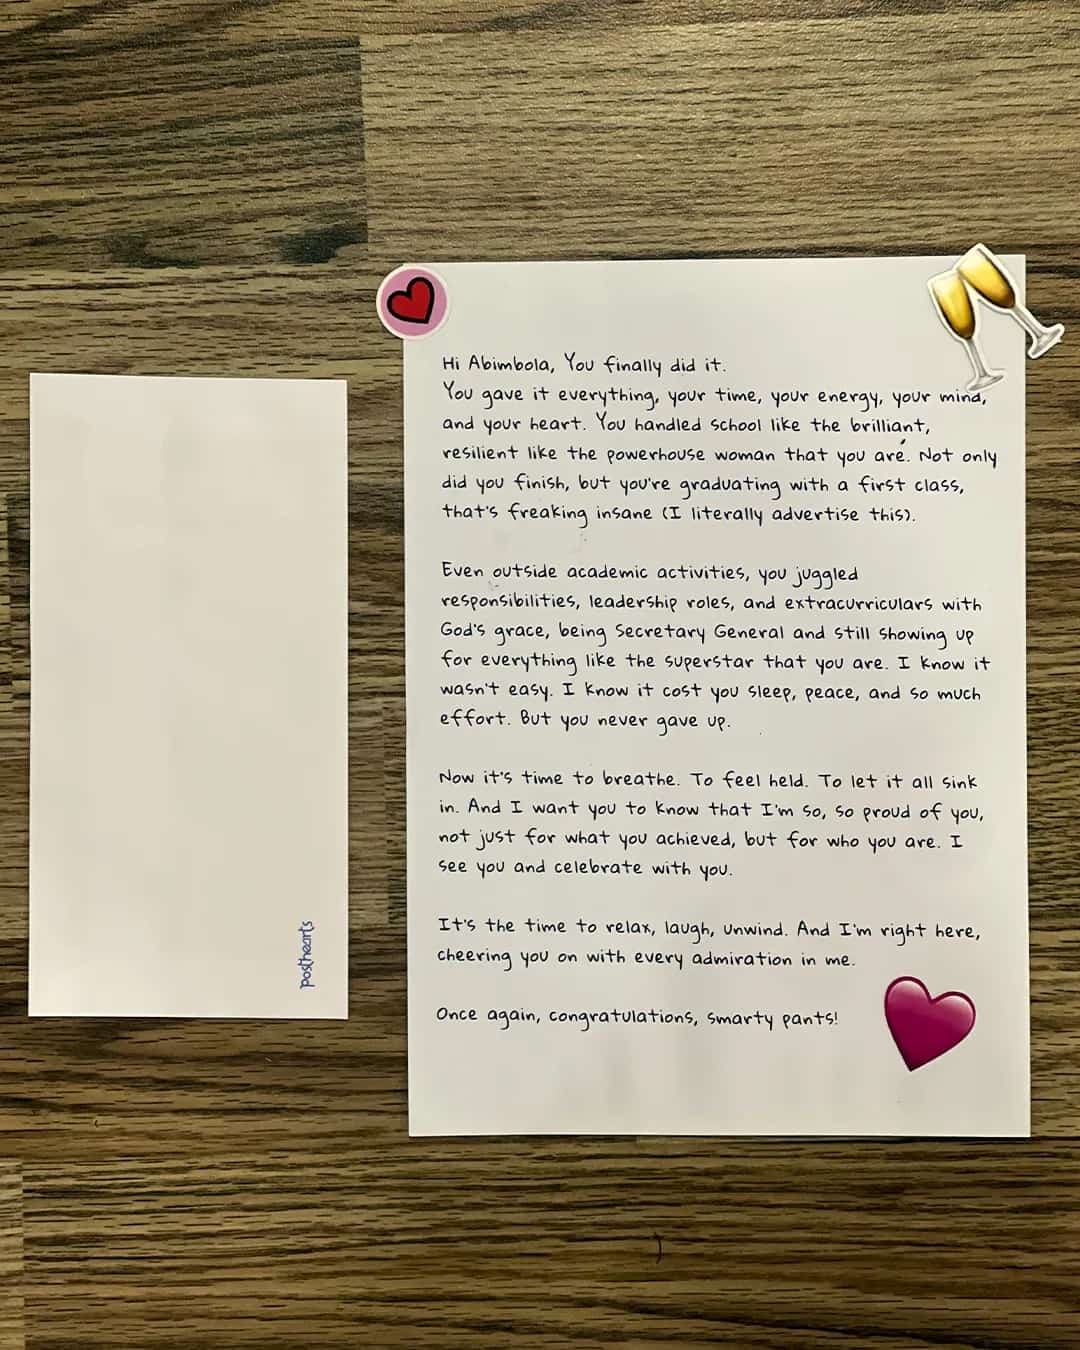 posthearts
Hi Abimbola, You finally did it.
You gave it everything, your time, your energy, your mind,
and your heart. You handled school like the brilliant,
resilient like the powerhouse woman that you are. Not only
did you finish, but you're graduating with a first class,
that's freaking insane (I literally advertise this).
Even outside academic activities, you juggled
responsibilities, leadership roles, and extracurriculars with
God's grace, being Secretary General and still showing up
for everything like the superstar that you are. I know it
wasn't easy. I know it cost you sleep, peace, and so much
effort. But you never gave up.
Now it's time to breathe. To feel held. To let it all sink
in. And I want you to know that I'm so, so proud of you,
not just for what you achieved, but for who you are. I
see you and celebrate with you.
It's the time to relax, laugh, unwind. And I'm right here,
cheering you on with every admiration in me.
Once again, congratulations, smarty pants!